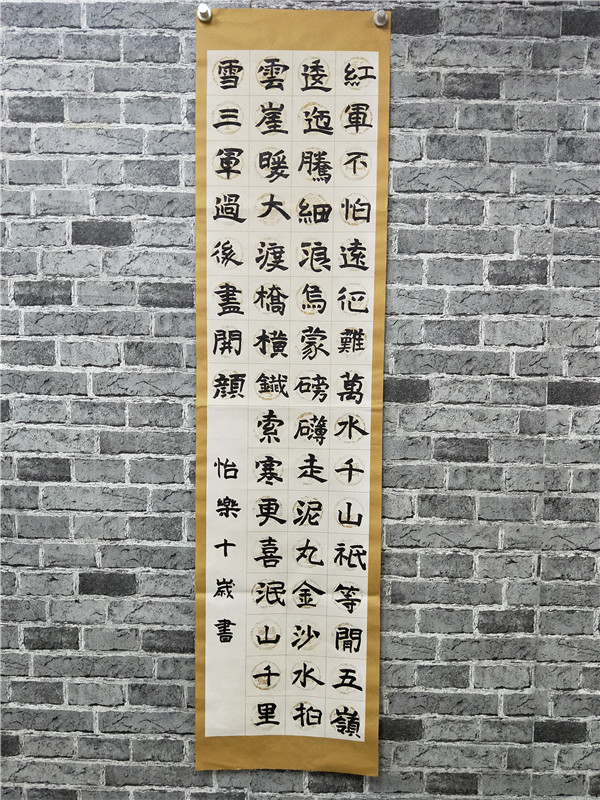 紅軍不怕遠征難萬水千山祗等閒五嶺
逶迤騰細浪烏蒙磅礴走泥丸金沙水拍
雲崖暖大渡橋橫鐵索寒更喜泯山千里
雪三軍過後盡開顏
怡樂十歲書